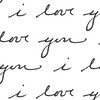 i love you
love you
you i lo
i love y